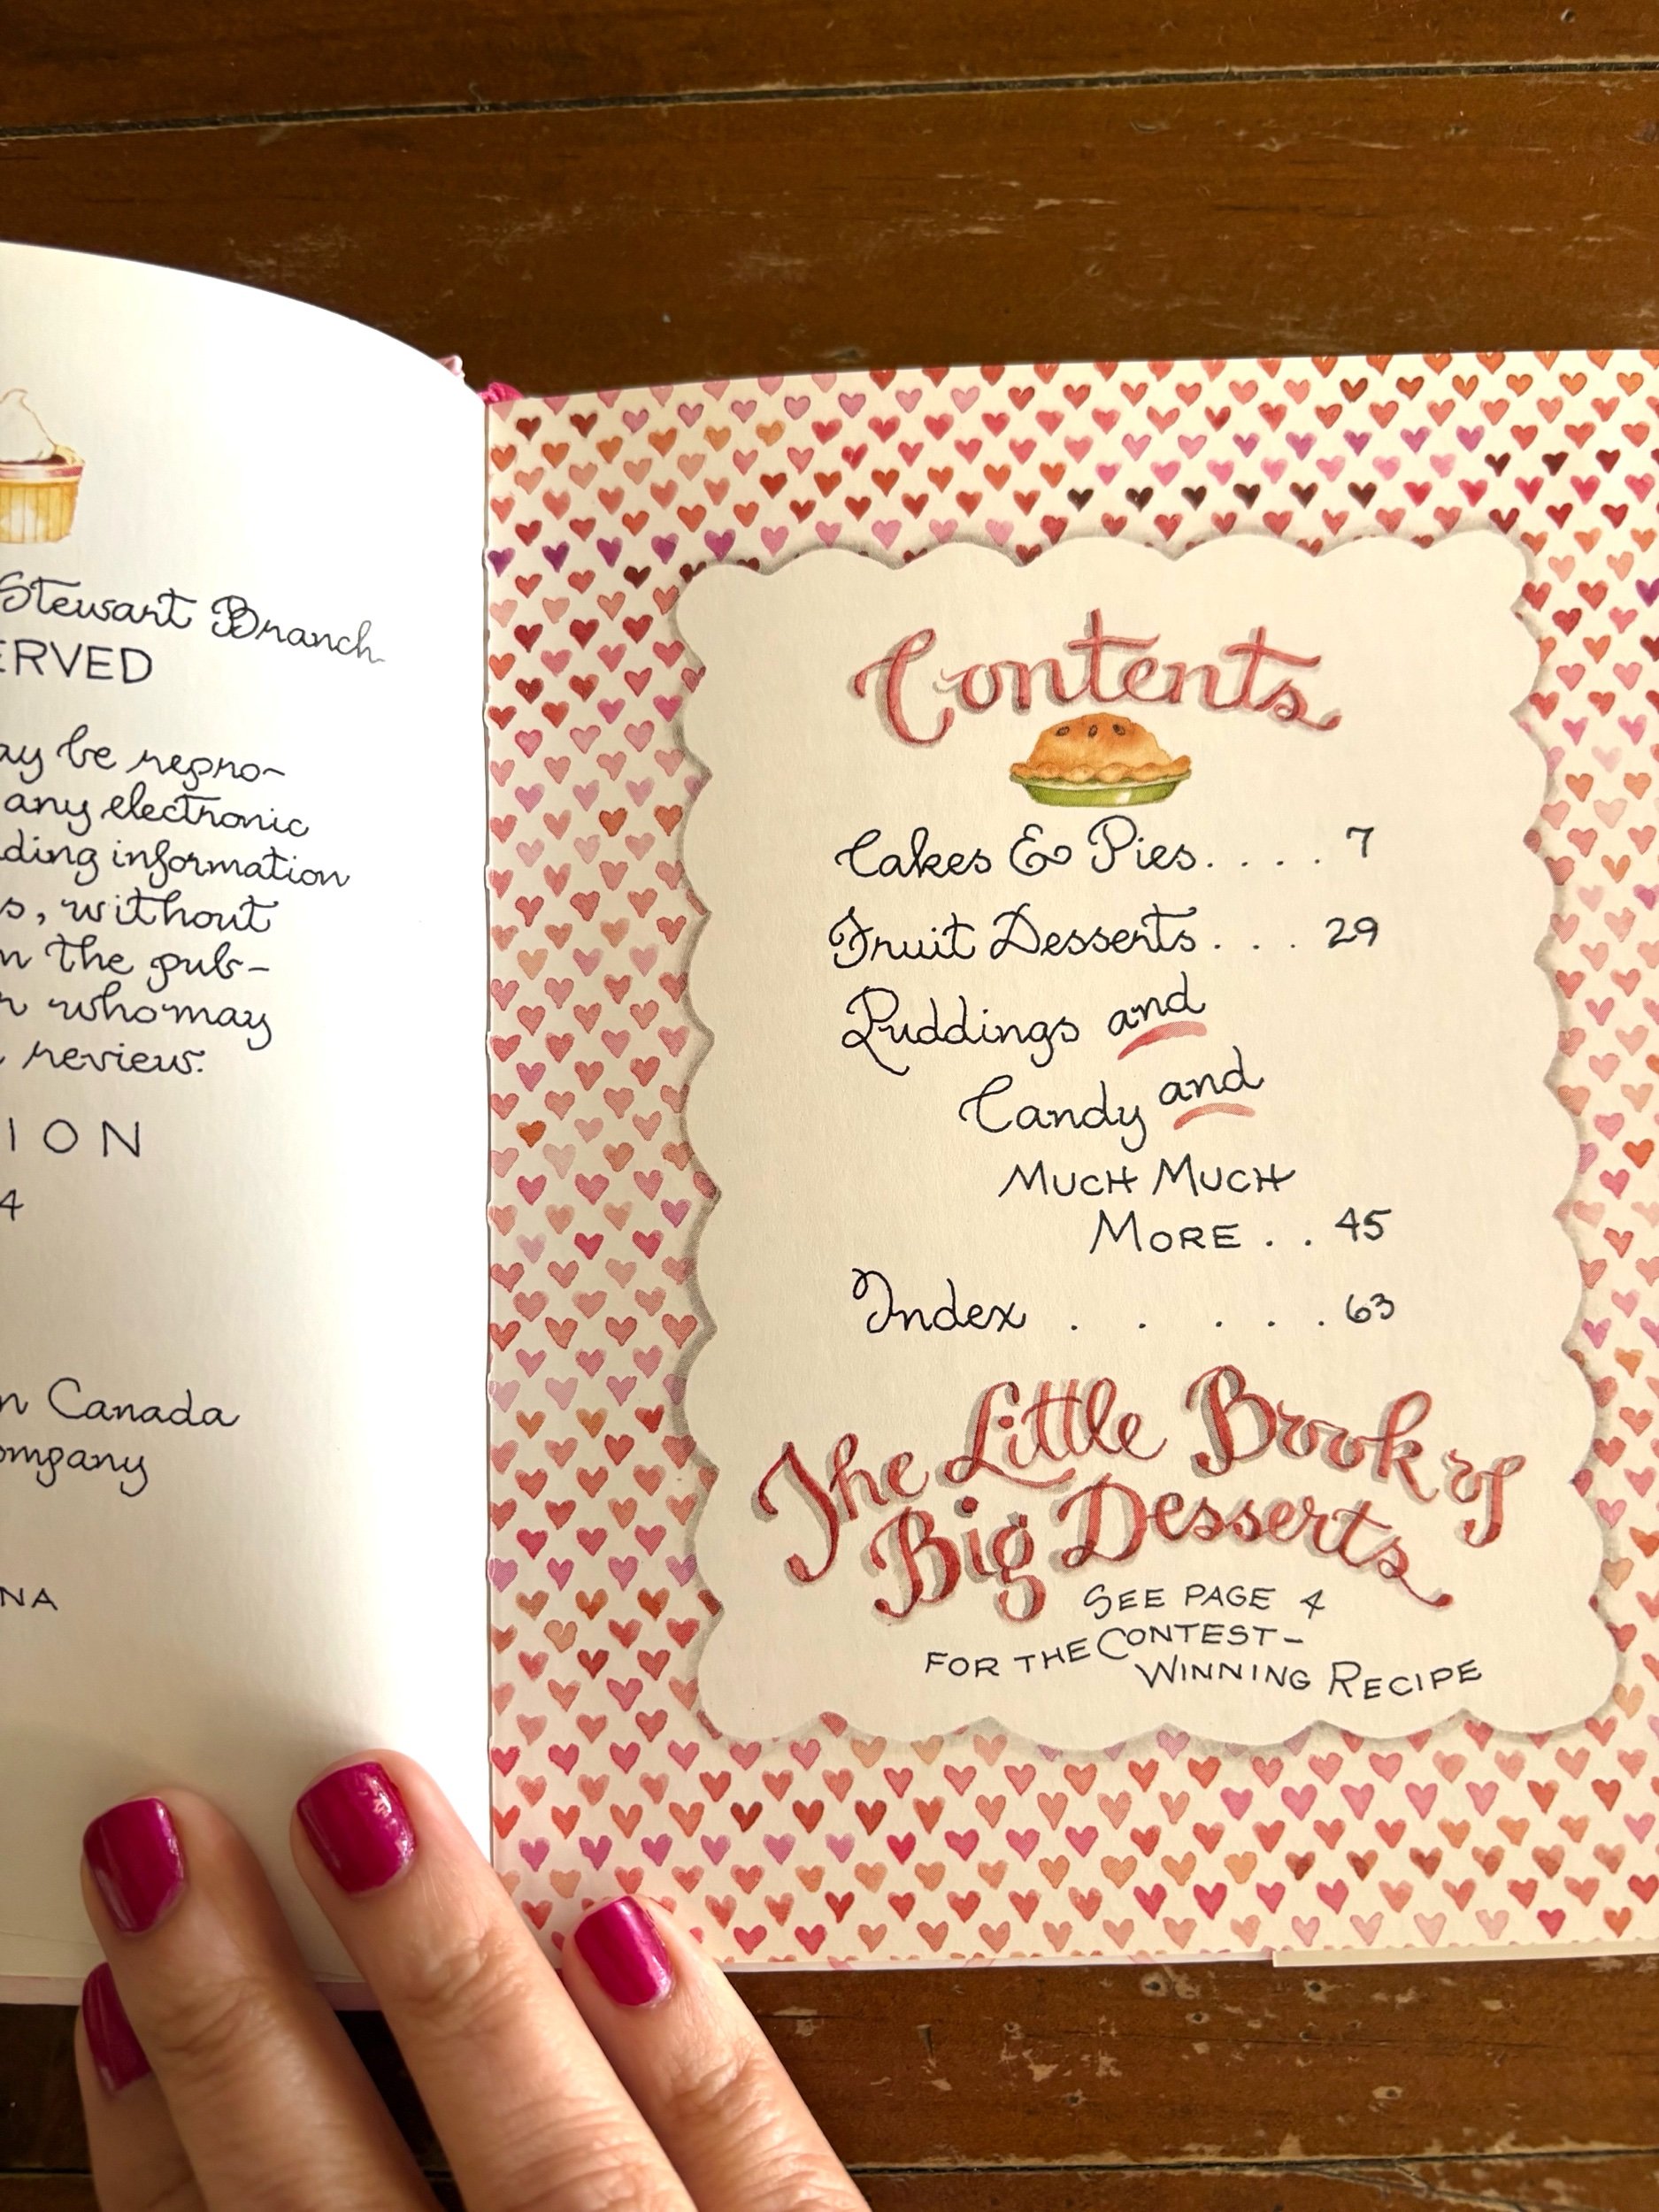 Stewart Branch
ERVED
ay be repro-
any electronic
ding information
s, without
n the pub-
r who may
review.
ION
4
n Canada
ompany
NA
Contents
Cakes & Pies. . . . . 7
Fruit Desserts . . . 29
Puddings and
Candy and
MUCH MUCH
MORE . . 45
Index . . . . . . 63
The Little Book of
Big Desserts
SEE PAGE 4
FOR THE CONTEST-
WINNING RECIPE